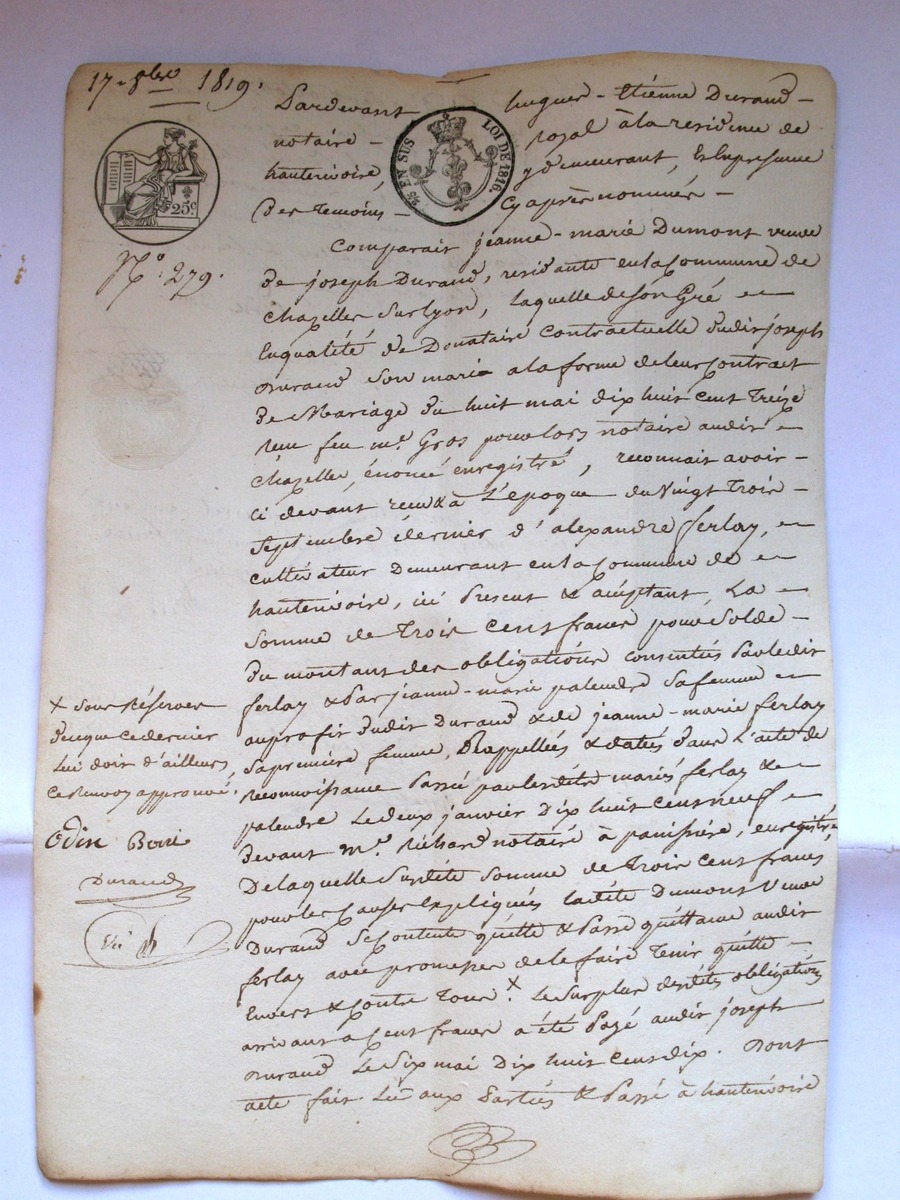 17 - 8bre 1819.
Pardevant hugues - Etiénne Durand -
notaire - royal à la residence de
hautenvoire, y demeurant, & En presence
Des temoins - Cy après nommés -
25c.
25 EN SUS LOI DE 1816.
N.o 279.
Comparait jeanne - marie Dumont veuve
de joseph Durand, residante en la Commune de
Chazelles sur lyon, laquelle de son Gré en
En qualité de Donataire Contractuelle dudit joseph
Durand son marie a la forme de leur Contract
de Mariage du huit mai dix huit cent treize
reçu feu me. Gros pour lors notaire audit
Chazelles, énoncé enregistré, reconnait avoir -
Ci devant reçu à L'époque du Vingt trois -
Septembre dernier d'alexandre ferlay,
Cultivateur Demeurant en la Commune de
hautenvoire, ici Present & aceptant, La -
Somme de Trois Cent francs pour Solde -
du montant des obligations consenties Par ledit
ferlay & Par jeanne - marie palendre Sa femme
au profit dudit Durand & de jeanne - marie ferlay
Sa premiere femme, Rappellées & datées dans L'acte de
reconnoissance Passé par lesdits mariés ferlay &
palendre Le deux janvier Dix huit Cent neuf
Devant me. Richard notaire à panissiere, enregistré,
De laquelle Susdite Somme de trois Cent francs
pour les Causes Expliquées ladite Dumont Veuve
Durand Se Contente quitte & Passe quittance audit
ferlay avec promesse de le faire tenir quitte -
Envers & Contre Tous. x Le Surplus desdites obligations
arrivant a Cent francs a été Payé audit joseph
Durand Le Six mai Dix huit Cent dix. Dont
acte fait Lu aux Parties & Passé à hautenvoire
x Sous Réserves
de ce que ce dernier
Lui doit d'ailleurs,
Ce Renvoy approuvé,
Odin
Durand